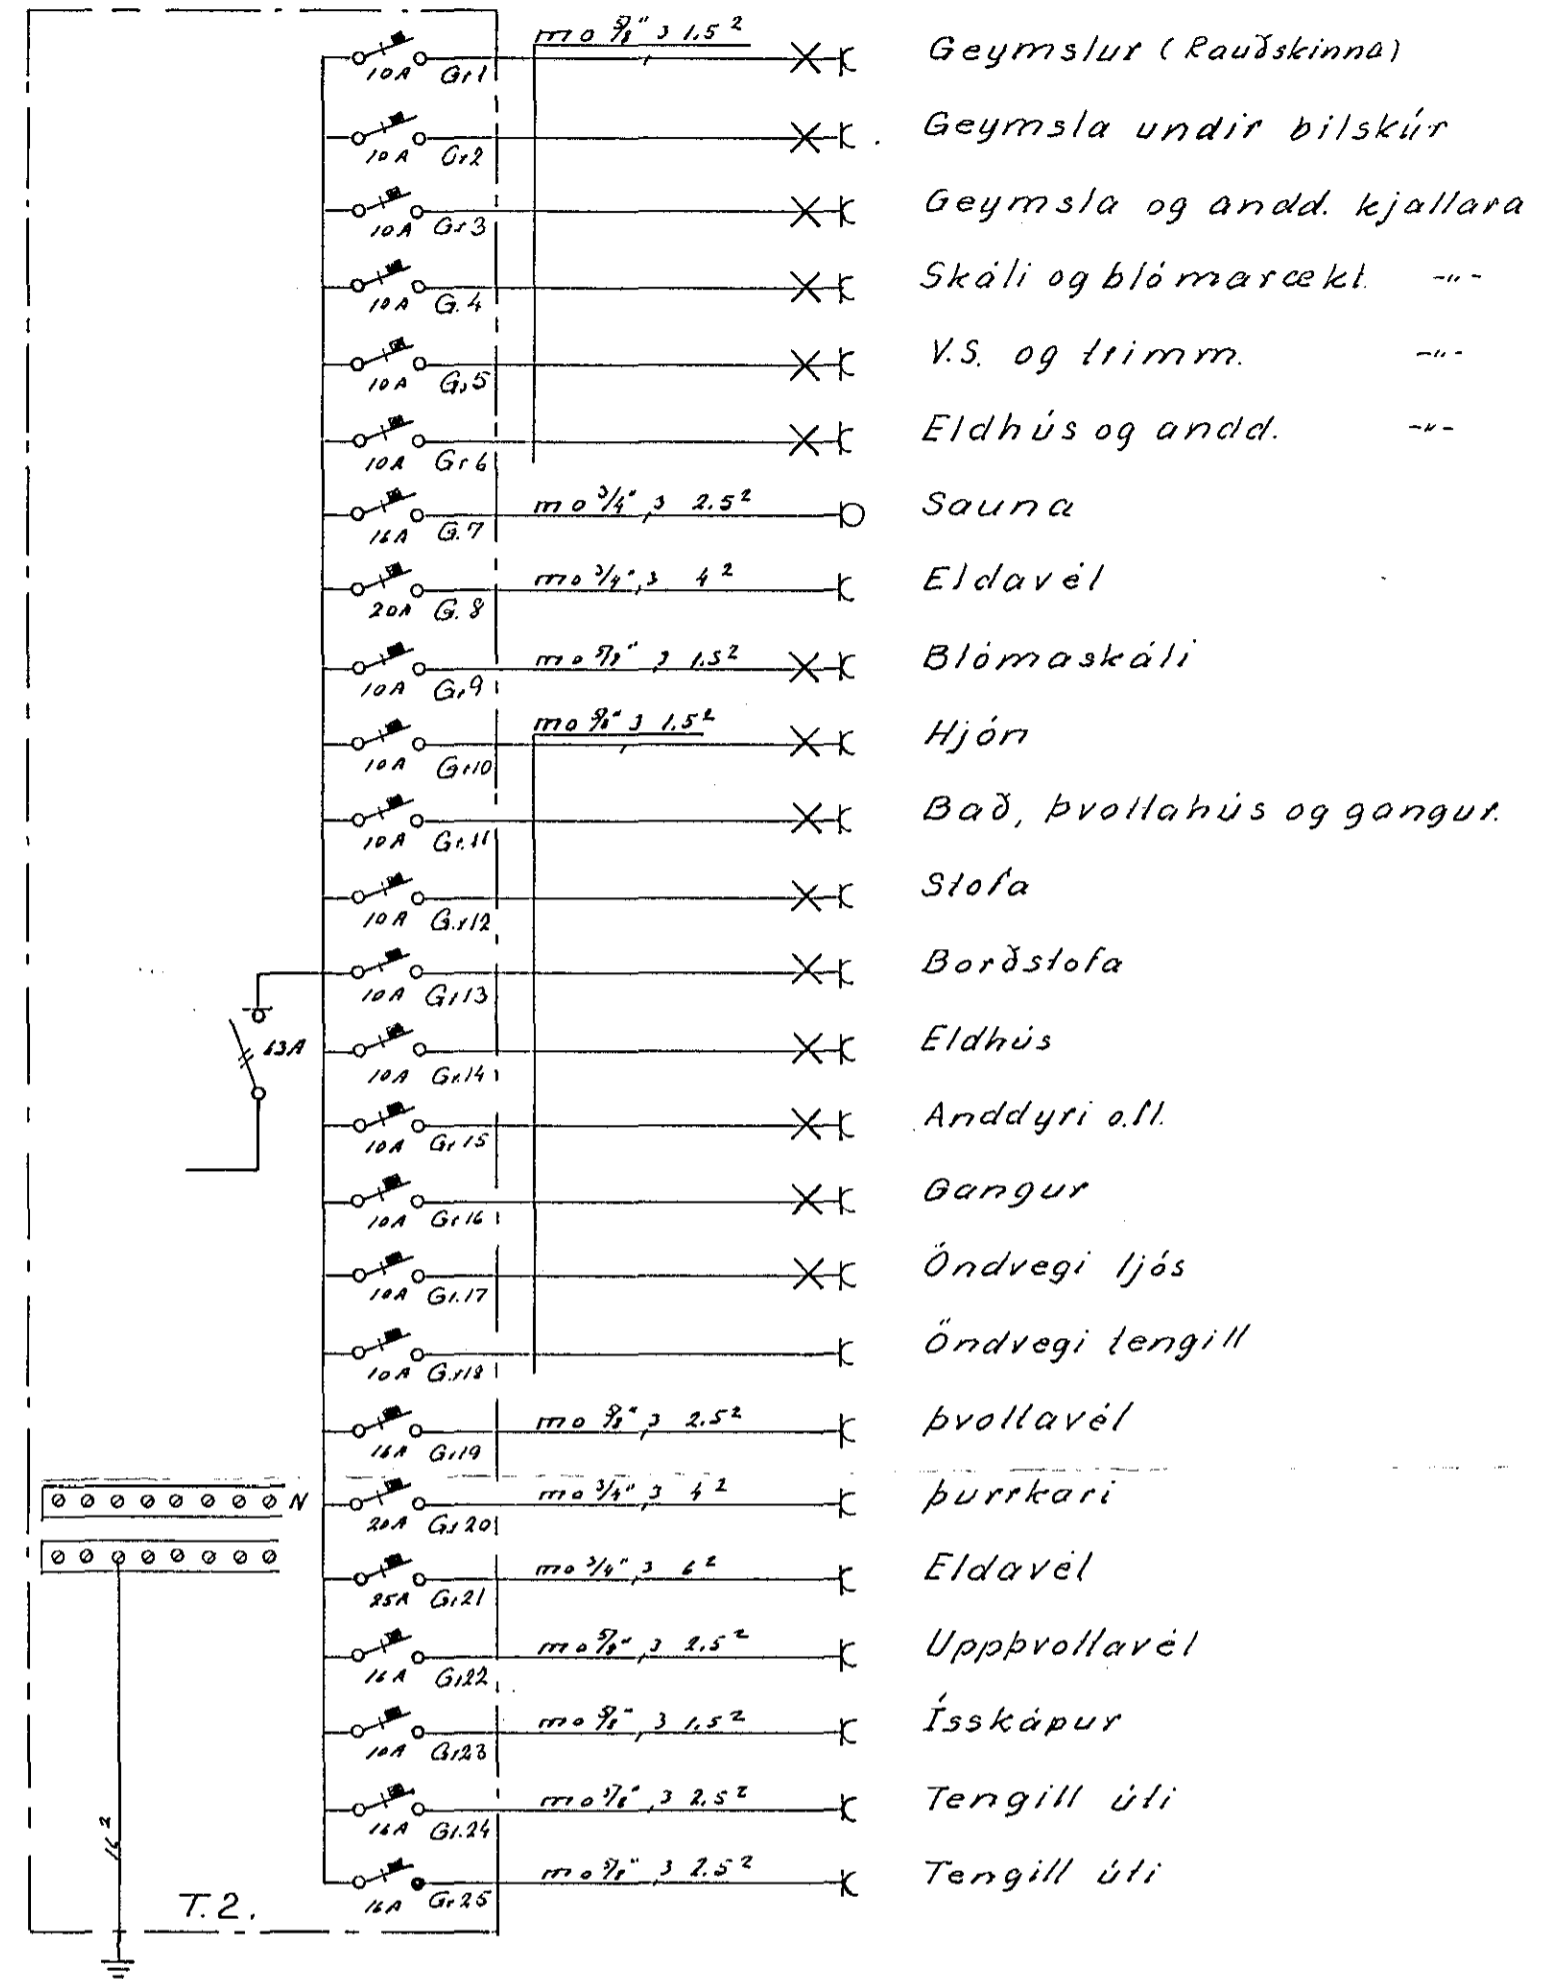 mo 5/8" 3 1.5²
10A Gr1 Geymslur (Rauðskinna)
10A Gr2 Geymsla undir bilskúr
10A Gr3 Geymsla og andd. kjallara
10A Gr4 Skáli og blómarækt. -"-
10A Gr5 V.S. og trimm. -"-
10A Gr6 Eldhús og andd. -"-
16A Gr7 mo 3/4", 3 2.5² Sauna
20A Gr8 mo 3/4", 3 4² Eldavél
10A Gr9 mo 5/8", 3 1.5² Blómaskáli
mo 5/8" 3 1.5²
10A Gr10 Hjón
10A Gr.11 Bað, þvottahús og gangur.
10A Gr12 Stofa
10A Gr13 Borðstofa
63A
10A Gr.14 Eldhús
10A Gr15 Anddyri o.fl.
10A Gr16 Gangur
10A Gr.17 Öndvegi ljós
10A Gr18 Öndvegi tengill
16A Gr19 mo 5/8", 3 2.5² Þvottavél
N 20A Gr20 mo 3/4", 3 4² Þurrkari
25A Gr21 mo 3/4", 3 6² Eldavél
16A Gr22 mo 5/8", 3 2.5² Uppþvottavél
10A Gr23 mo 5/8", 3 1.5² Ísskápur
16A Gr.24 mo 5/8", 3 2.5² Tengill úti
16A Gr25 mo 5/8", 3 2.5² Tengill úti
16²
T.2.